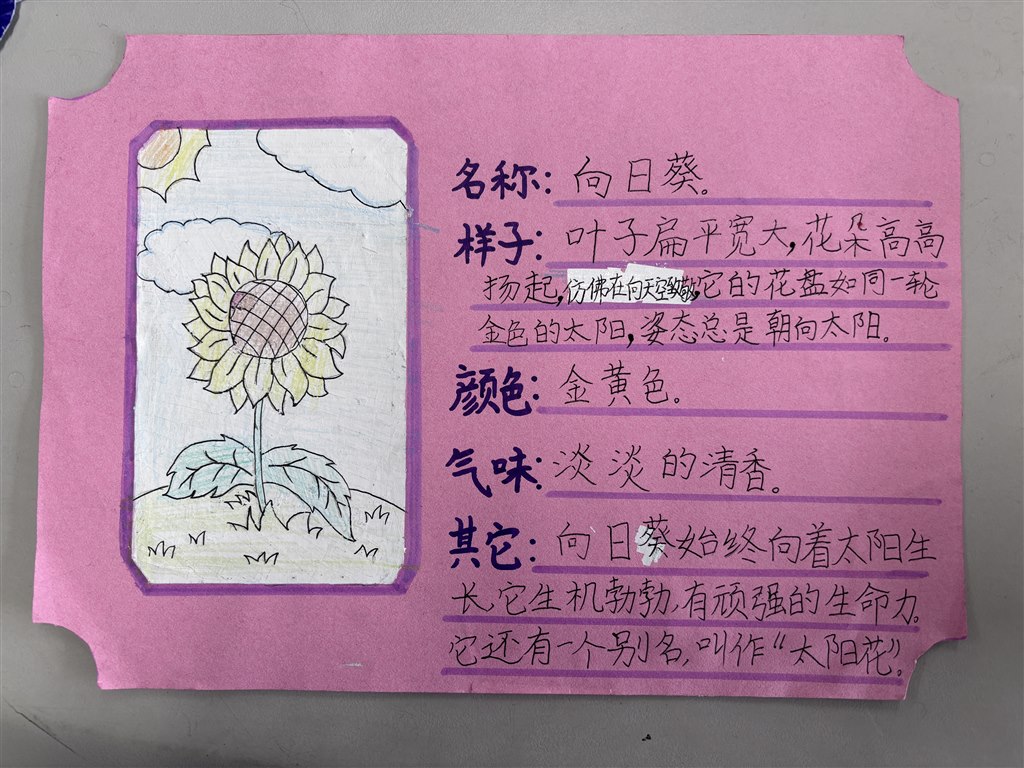 名称：向日葵。
样子：叶子扁平宽大，花朵高高
扬起，仿佛在向天空致敬，它的花盘如同一轮
金色的太阳，姿态总是朝向太阳。
颜色：金黄色。
气味：淡淡的清香。
其它：向日葵始终向着太阳生
长，它生机勃勃，有顽强的生命力。
它还有一个别名，叫作“太阳花”。